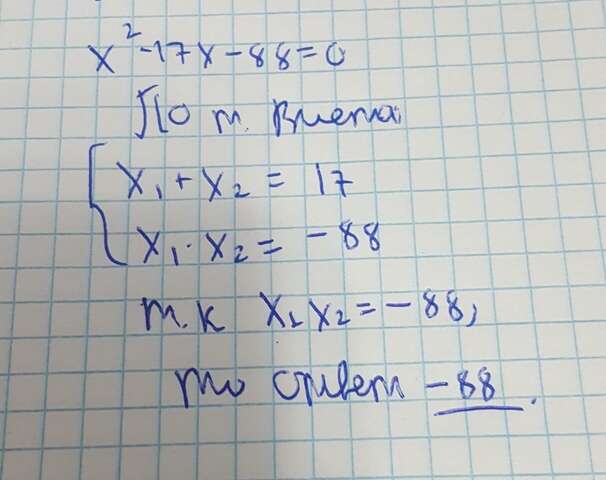 x²-17x-88=0
По т. Виета:
x₁ + x₂ = 17
x₁ · x₂ = -88
т.к x₁ x₂ = -88,
то ответ -88.